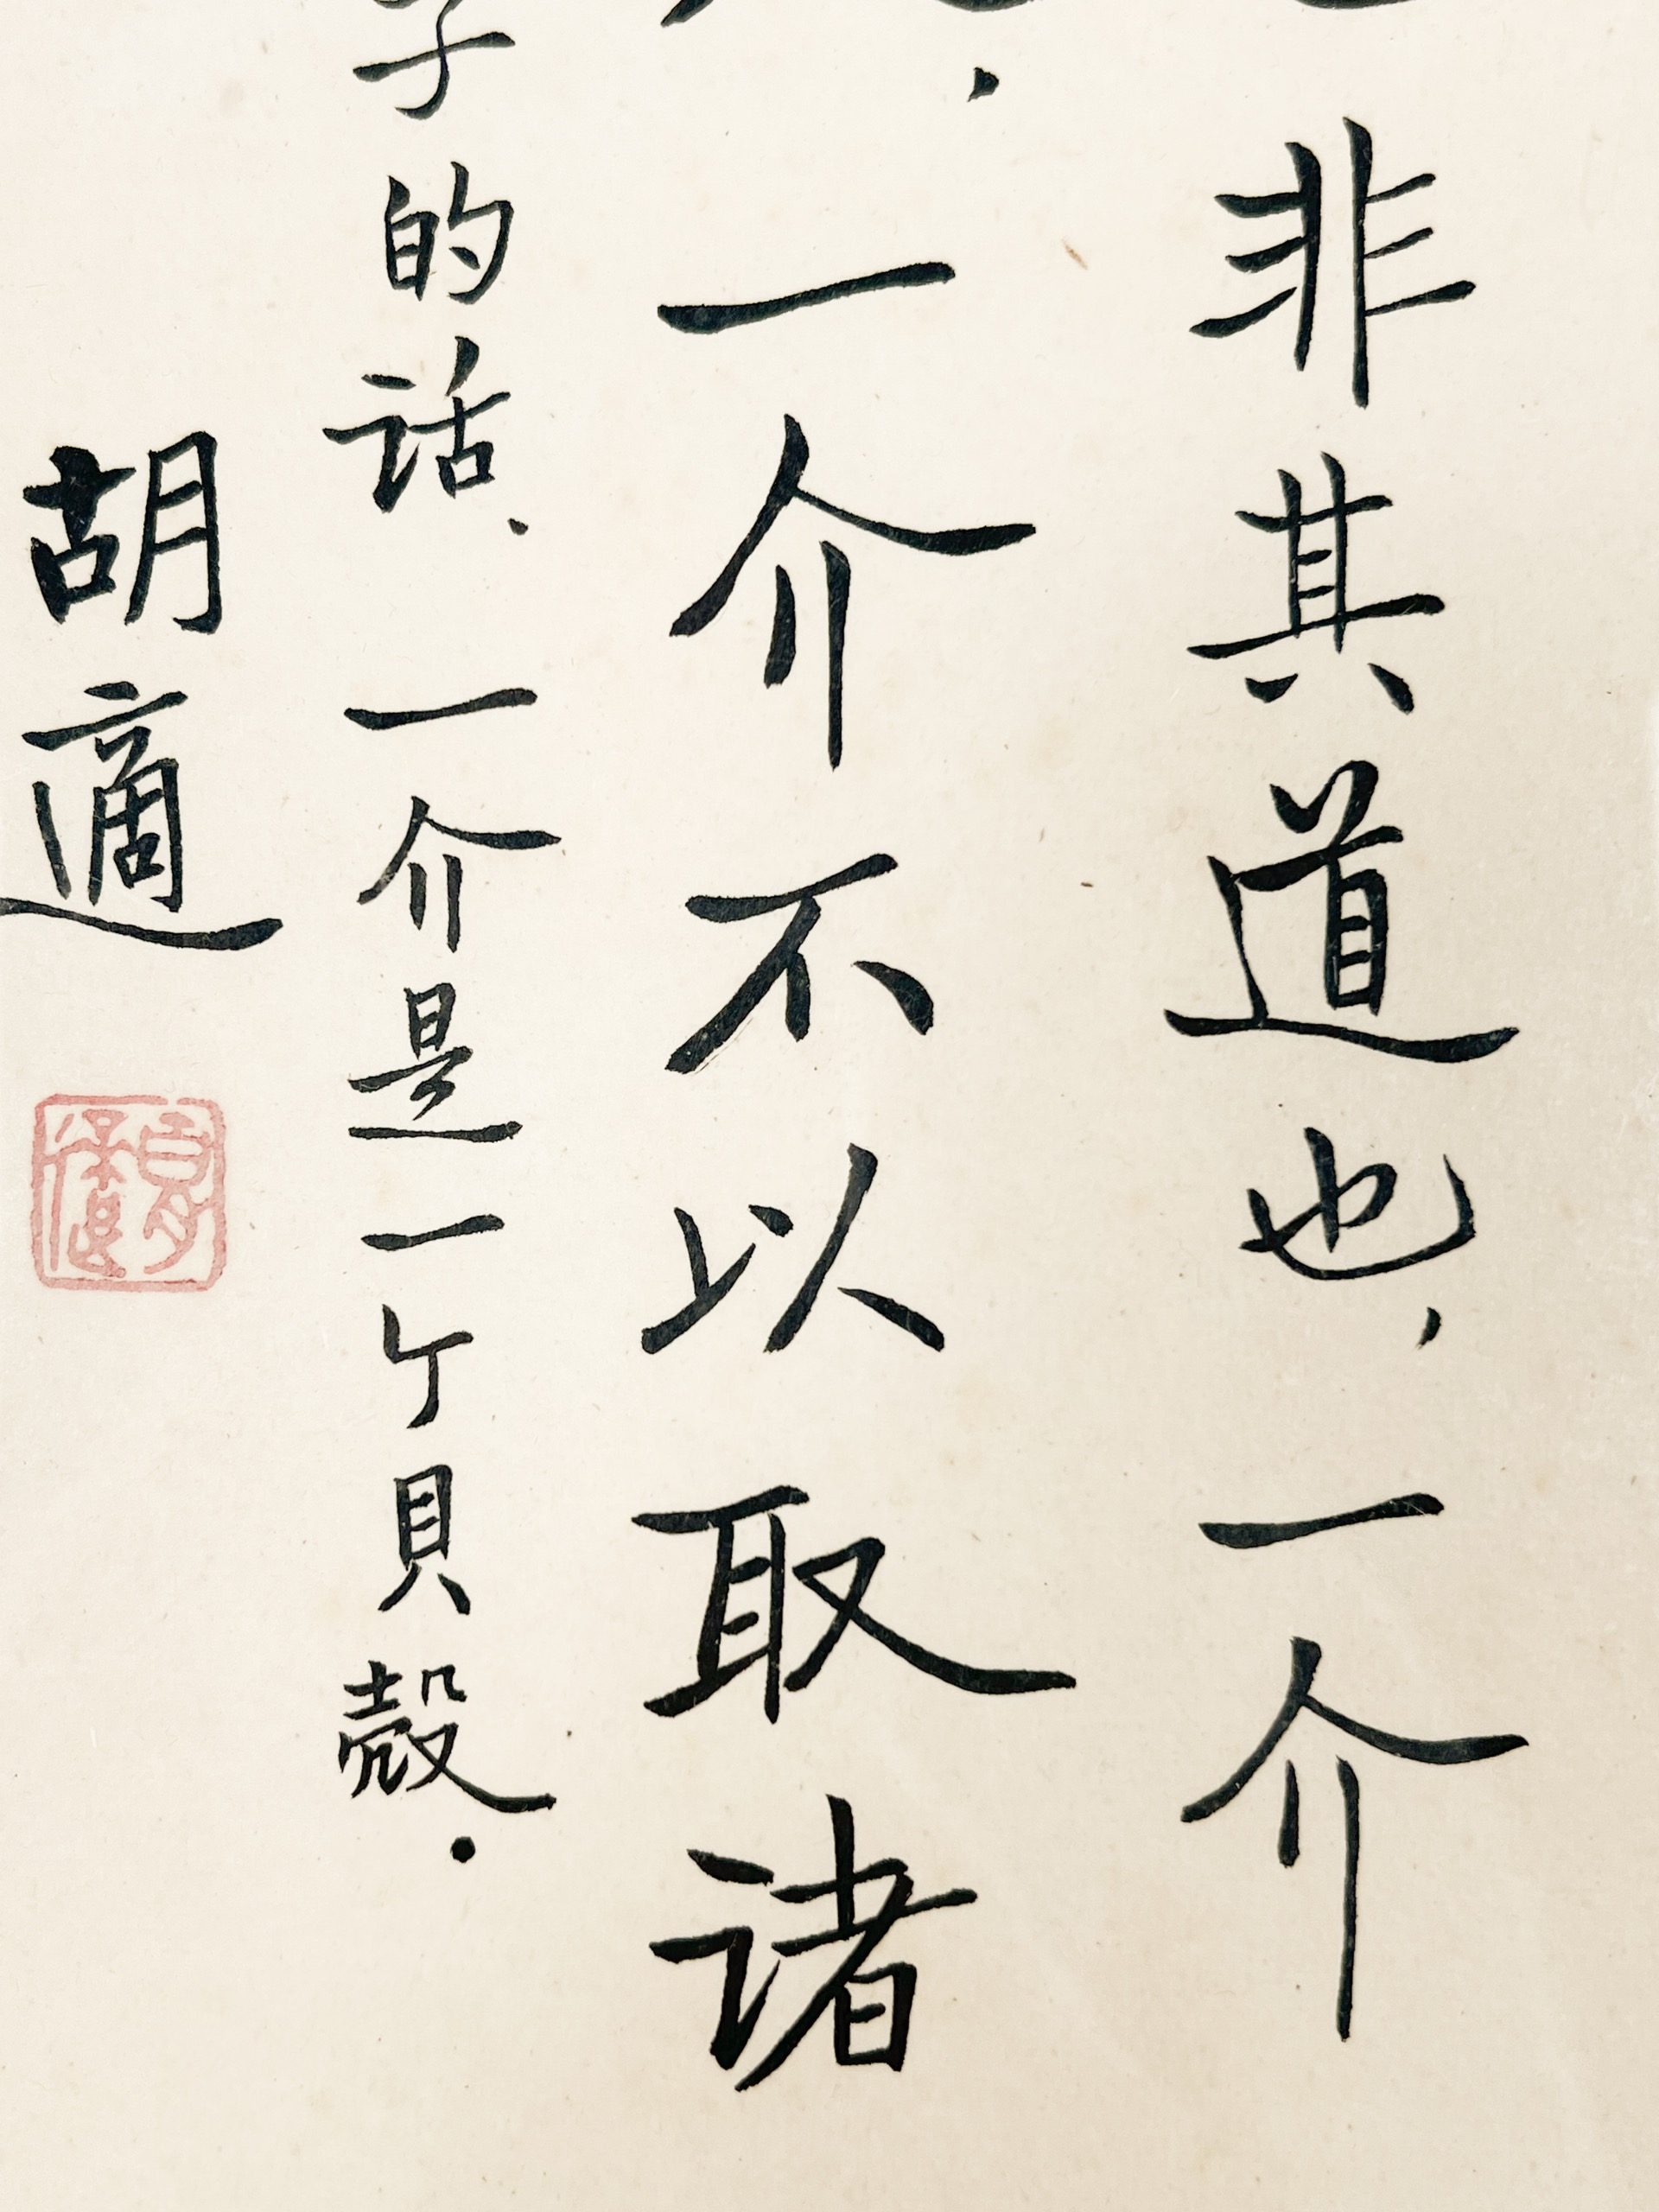 非其道也，一介
，一介不以取诸
子的话，一介是一个貝殼．
胡適